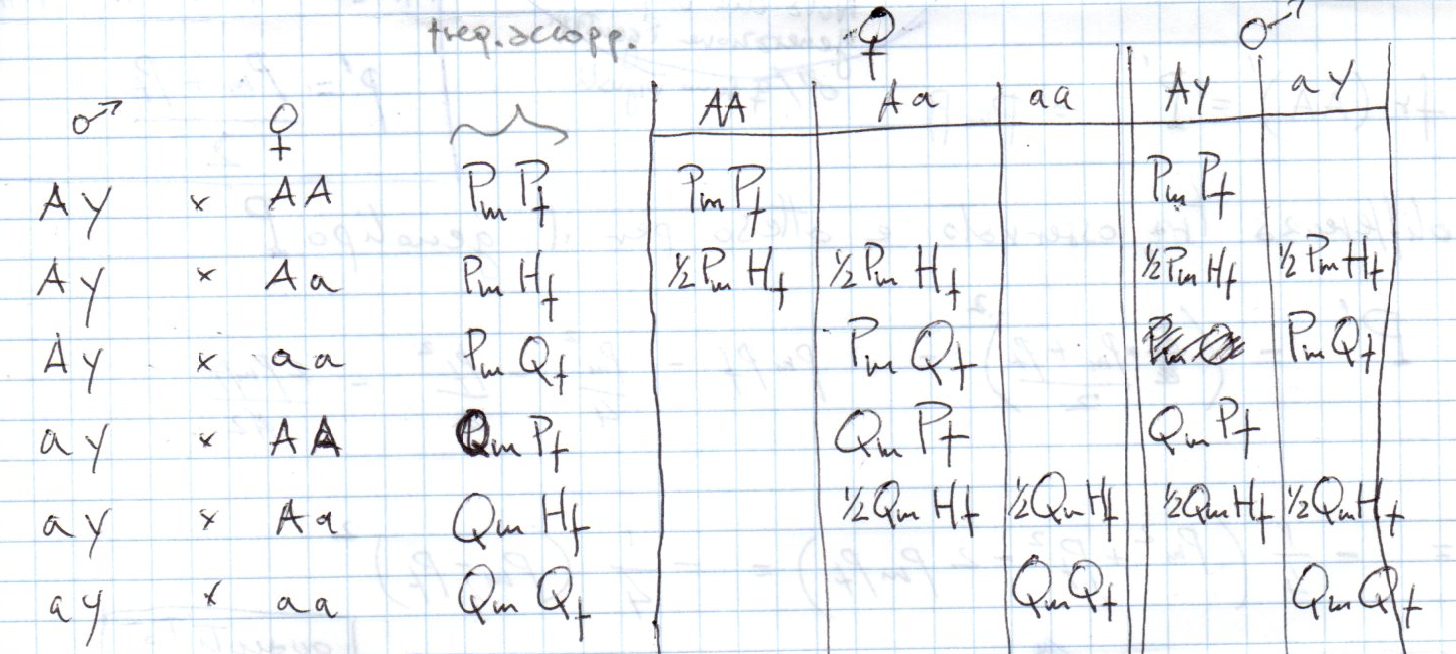 freq. accopp. ♀ ♂
AA Aa aa AY aY
♂ ♀
AY × AA PmPf PmPf PmPf
AY × Aa PmHf ½PmHf ½PmHf ½PmHf ½PmHf
AY × aa PmQf PmQf PmQf
aY × AA QmPf QmPf QmPf
aY × Aa QmHf ½QmHf ½QmHf ½QmHf ½QmHf
aY × aa QmQf QmQf QmQf